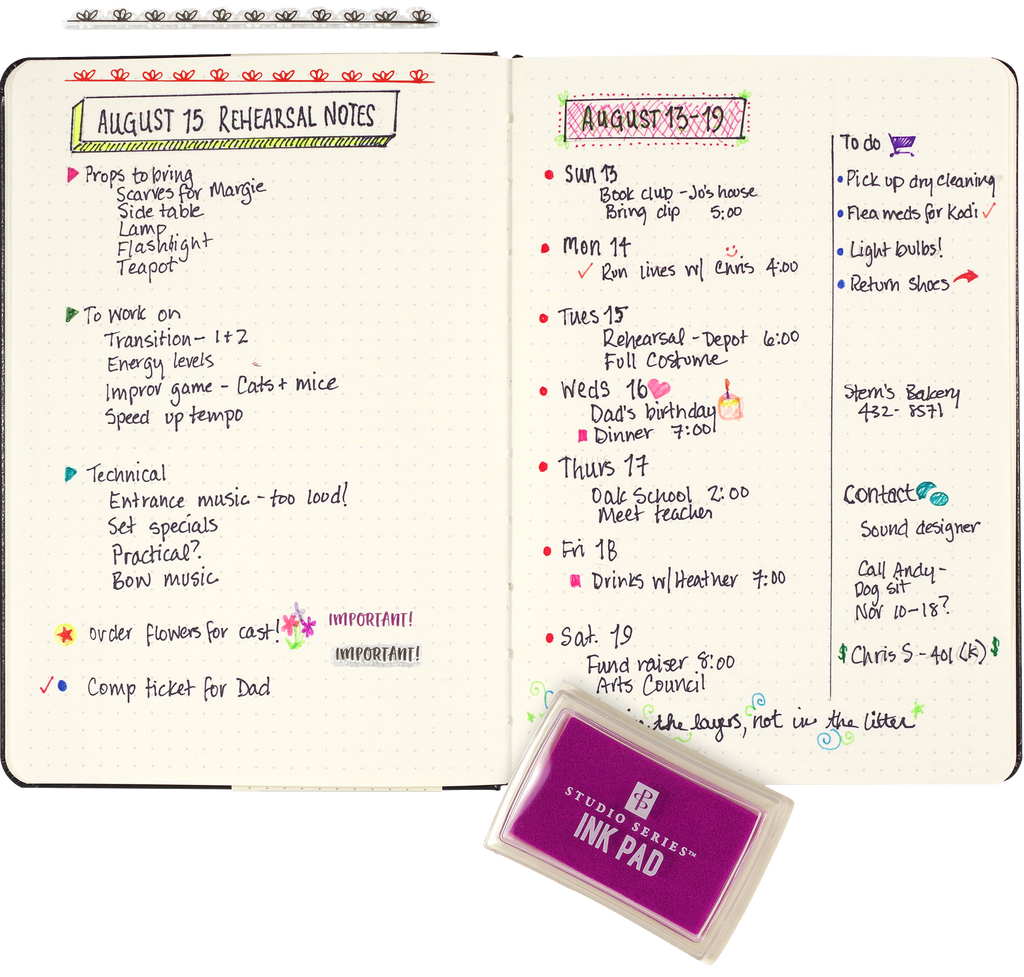 AUGUST 15 REHEARSAL NOTES
Props to bring
Scarves for Margie
Side table
Lamp
Flashlight
Teapot
To work on
Transition - 1+2
Energy levels
Improv game - Cats + mice
Speed up tempo
Technical
Entrance music - too loud!
Set specials
Practical?
Bow music
order flowers for cast!
IMPORTANT!
IMPORTANT!
Comp ticket for Dad
AUGUST 13-19
Sun 13
Book club - Jo's house
Bring dip 5:00
Mon 14
Run lines w/ Chris 4:00
Tues 15
Rehearsal - Depot 6:00
Full Costume
Weds 16
Dad's birthday
Dinner 7:00
Thurs 17
Oak School 2:00
Meet teacher
Fri 18
Drinks w/Heather 7:00
Sat. 19
Fund raiser 8:00
Arts Council
in the layers, not in the litter
To do
Pick up dry cleaning
Flea meds for Kodi
Light bulbs!
Return shoes
Stern's Bakery
432-8571
Contact
Sound designer
Call Andy-
Dog sit
Nov 10-18?
$ Chris S - 401(K) $
STUDIO SERIES™
INK PAD